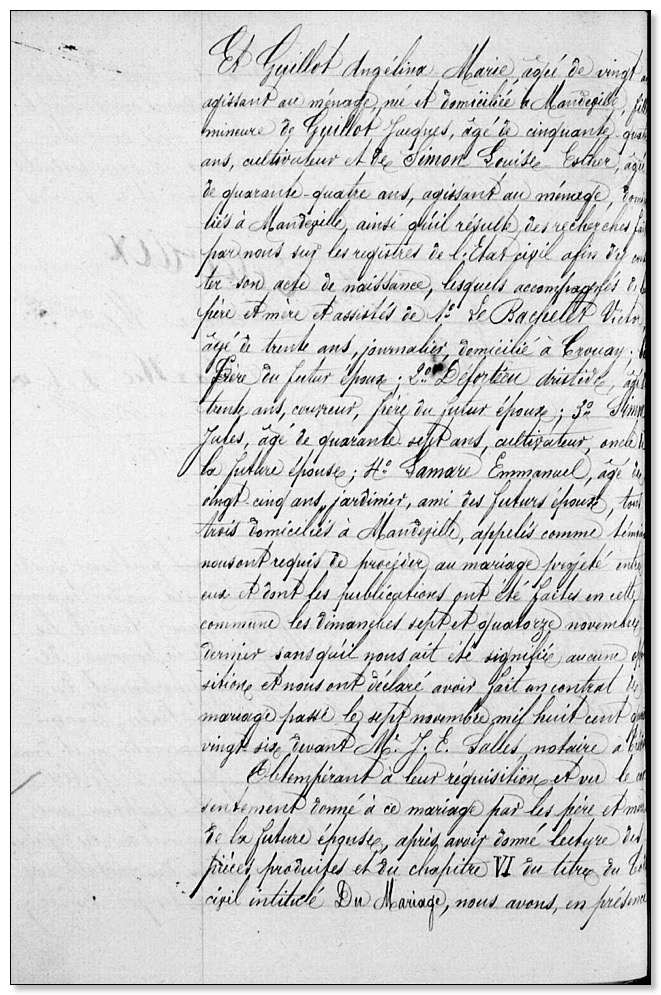 Et Guillot Angélina Marie, âgée de vingt
agissant au ménage, née et domiciliée à Mandeville, fille
mineure de Guillot Jacques, âgé de cinquante-quatre
ans, cultivateur et de Simon Louise Esther, âgée
de quarante-quatre ans, agissant au ménage, domi
liés à Mandeville, ainsi qu'il résulte des recherches fait
par nous sur les registres de l'Etat civil afin de cons
ter son acte de naissance, lesquels accompagnés de
père et mère et assistés de 1º Le Bachelet Victor
âgé de trente ans, journalier, domicilié à Crouay,
frère du futur époux; 2º Aristide, âgé
trente ans, couvreur, frère du futur époux; 3º Simon
Jules, âgé de quarante sept ans, cultivateur, oncle de
la future épouse; 4º Lamare Emmanuel, âgé de
vingt-cinq ans, jardinier, ami des futurs époux, tous
trois domiciliés à Mandeville, appelés comme témoins
nous ont requis de procéder au mariage projeté entre
eux et dont les publications ont été faites en cette
commune les dimanches sept et quatorze novembre
dernier sans qu'il nous ait été signifié aucune oppo
sition et nous ont déclaré avoir fait un contrat de
mariage passé le sept novembre mil huit cent quatre
vingt-six devant Me J. E. Salles notaire à
Obtempérant à leur réquisition et vu le con
sentement donné à ce mariage par les père et mère
de la future épouse, après avoir donné lecture des
pièces produites et du chapitre VI du titre du Code
civil intitulé Du Mariage, nous avons, en présence